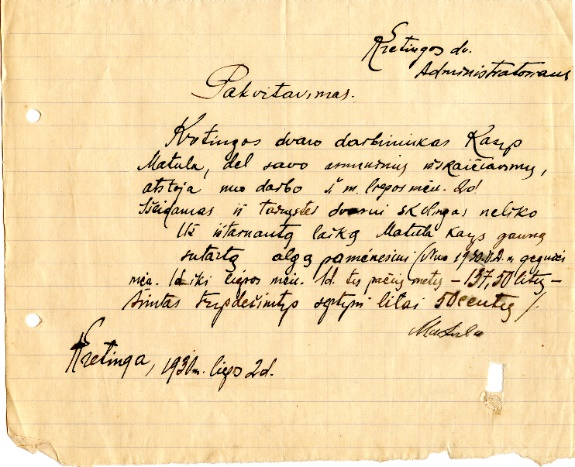 Kretingos dv.
Administratoriaus
Pakvitavimas.
Kretingos dvaro darbininkas Kazys
Matula, dėl savo asmeninių išskaičiavimų,
atstoja nuo darbo š. m. liepos mėn. 2d
Išeidamas iš tarnystės dvarui skolingas neliko
Už ištarnautą laiką Matula Kazys gauna
sutartą algą pomėnesiui (Nuo 1930. gegužės
mėn. 1d. iki liepos mėn. 1d. tų pačių metų – 137,50 litų –
Šimtas trysdešimtys septyni litai 50 centų /.
Matula
Kretinga, 1930m. liepos 2d.